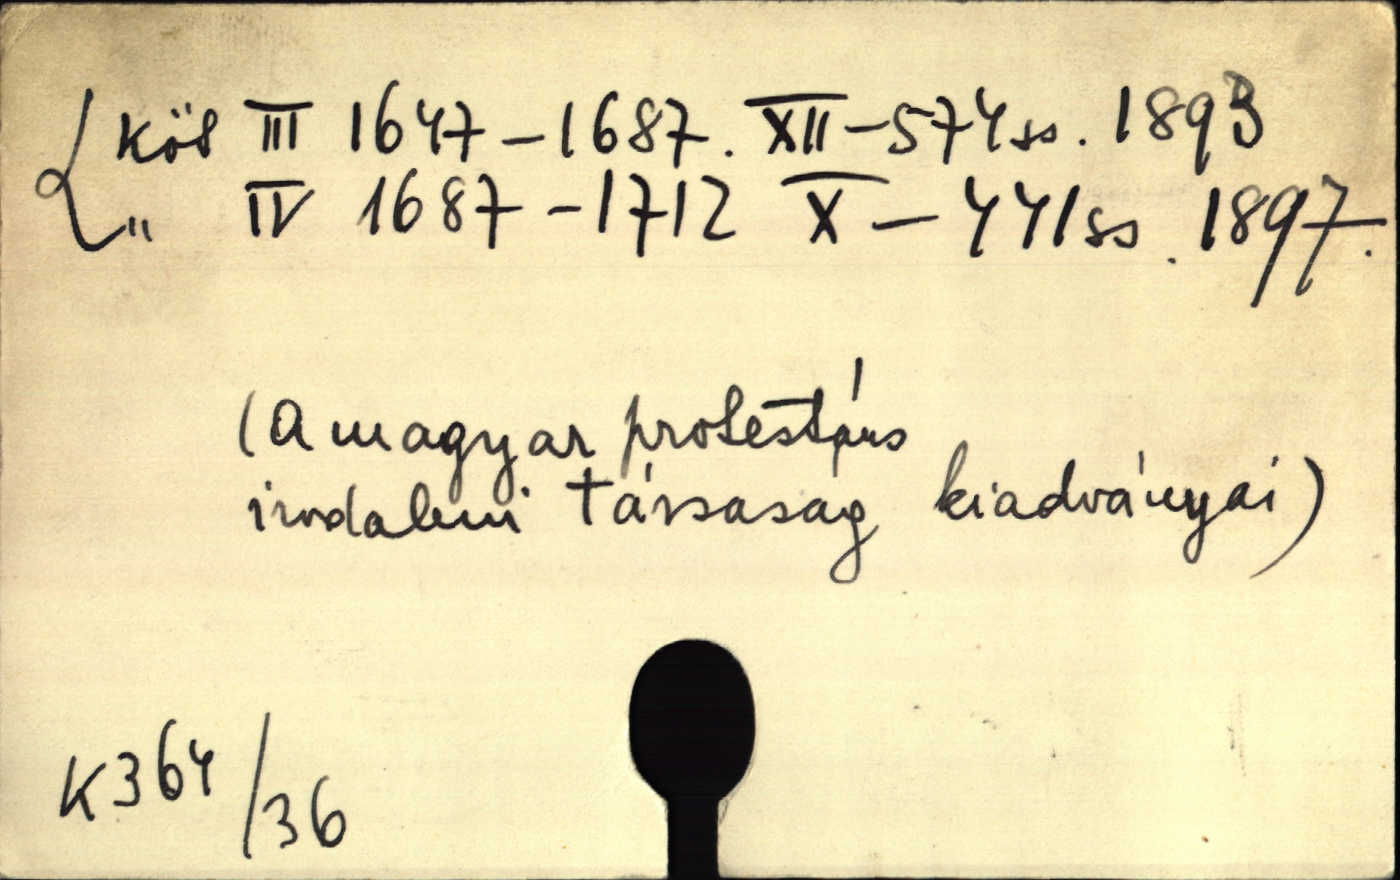 Köt III 1647-1687. XII-574 ss. 1893
" IV 1687-1712 X-441 ss. 1897.
(A magyar protestáns
irodalmi társaság kiadványai)
K364/36